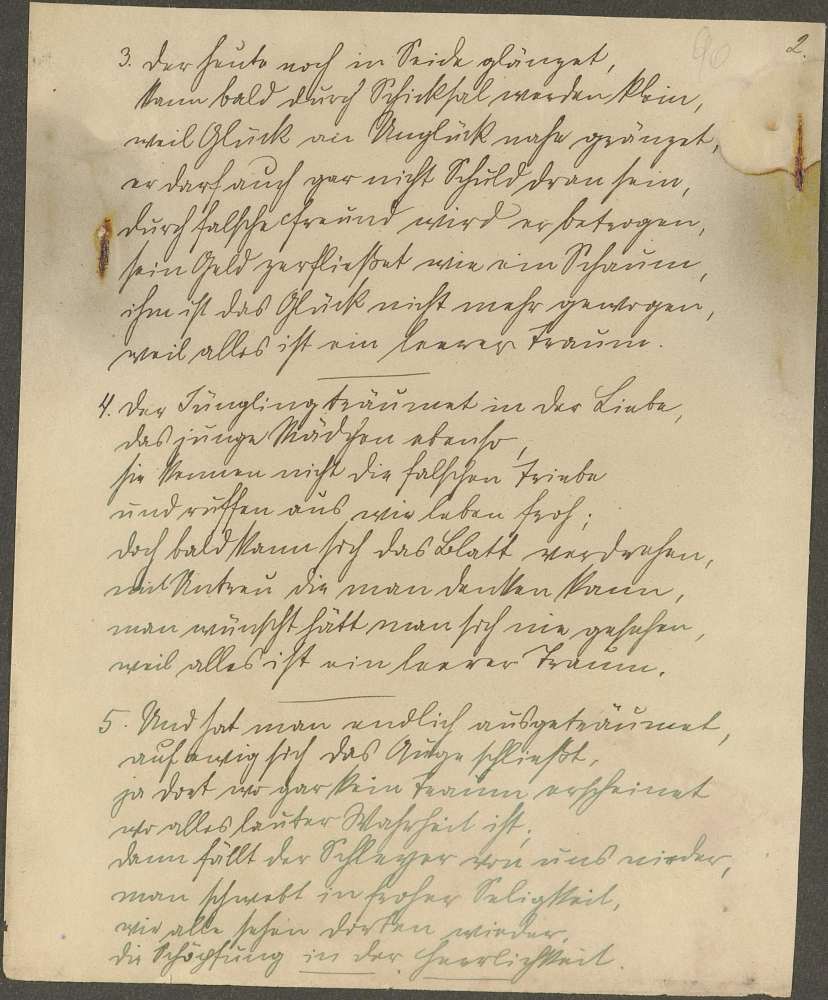 90
2.
3. Der heute noch in Seide glänzet,
kann bald durch Schicksal werden klein,
weil Glück an Unglück nahe gränzet,
er darf auch gar nicht Schuld dran sein,
durch falsche Freund wird er betrogen,
sein Geld zerfließet wie ein Schaum,
ihm ist das Glück nicht mehr gewogen,
weil alles ist ein leerer Traum.
4. Der Jüngling träumet in der Liebe,
das junge Mädchen ebenso,
sie kennen nicht die falschen Triebe
und ruffen aus wir leben froh;
doch bald kann sich das Blatt verdrehen,
mit Untreu die man denken kann,
man wünscht hätt man sich nie gesehen,
weil alles ist ein leerer Traum.
5. Und hat man endlich ausgeträumet,
auf ewig sich das Auge schließt,
ja dort wo gar kein Traum erscheinet
wo alles lauter Wahrheit ist,
dann fällt der Schleyer von uns nieder,
man schwebt in froher Seligkeit,
wir alle sehen dorten wieder,
die Schöpfung in der Herrlichkeit.